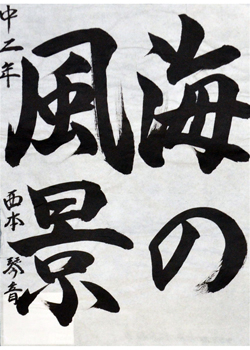 海の
風景
中二年 西本 琴音